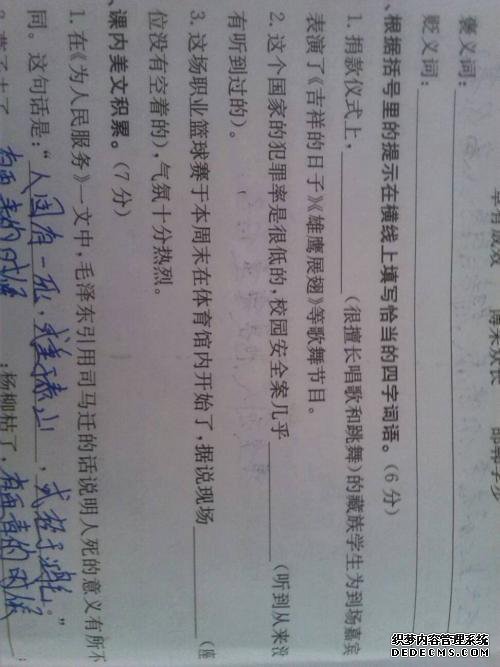 褒义词:
贬义词:
、根据括号里的提示在横线上填写恰当的四字词语。(6分)
1. 捐款仪式上,(很擅长唱歌和跳舞)的藏族学生为到场嘉宾
表演了《吉祥的日子》《雄鹰展翅》等歌舞节目。
2. 这个国家的犯罪率是很低的,校园安全案几乎(听到从来没
有听到过的)。
3. 这场职业篮球赛于本周末在体育馆内开始了,据说现场(座
位没有空着的),气氛十分热烈。
、课内美文积累。(7分)
1. 在《为人民服务》一文中,毛泽东引用司马迁的话说明人死的意义有所不
同。这句话是:“人固有一死,或重于泰山,或轻于鸿毛。”
有再青的时候;杨柳枯了,有再青的时候;
织梦内容管理系统
DEDECMS.COM